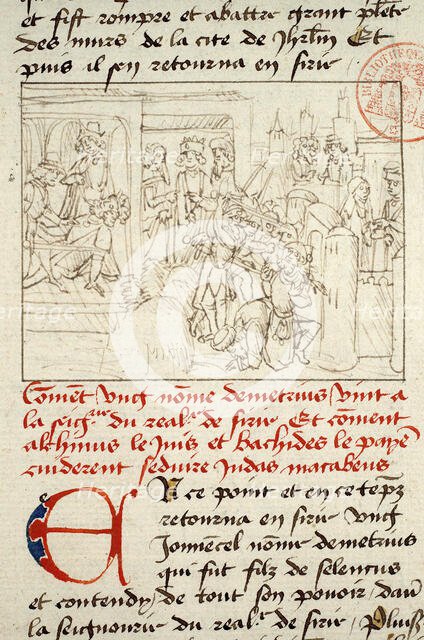 et fist rompre et abattre grant plete
des murs de la cite de Jhrlm Et
puis il sen retourna en sirie
BIBLIOTHEQUE
Heritage
Coment ung nome demetrius vint a
la seigrie du real.e de sirie Et coment
alchimus le Juis et bachides le paye
cuiderent seduire Judas macabeus
En ce point et en ce tempz
retourna en sirie ung
Jouvencel nome demetrius
qui fut filz de seleucus
et contendy de tout son povoir davoir
la seignourie du real.e de sirie